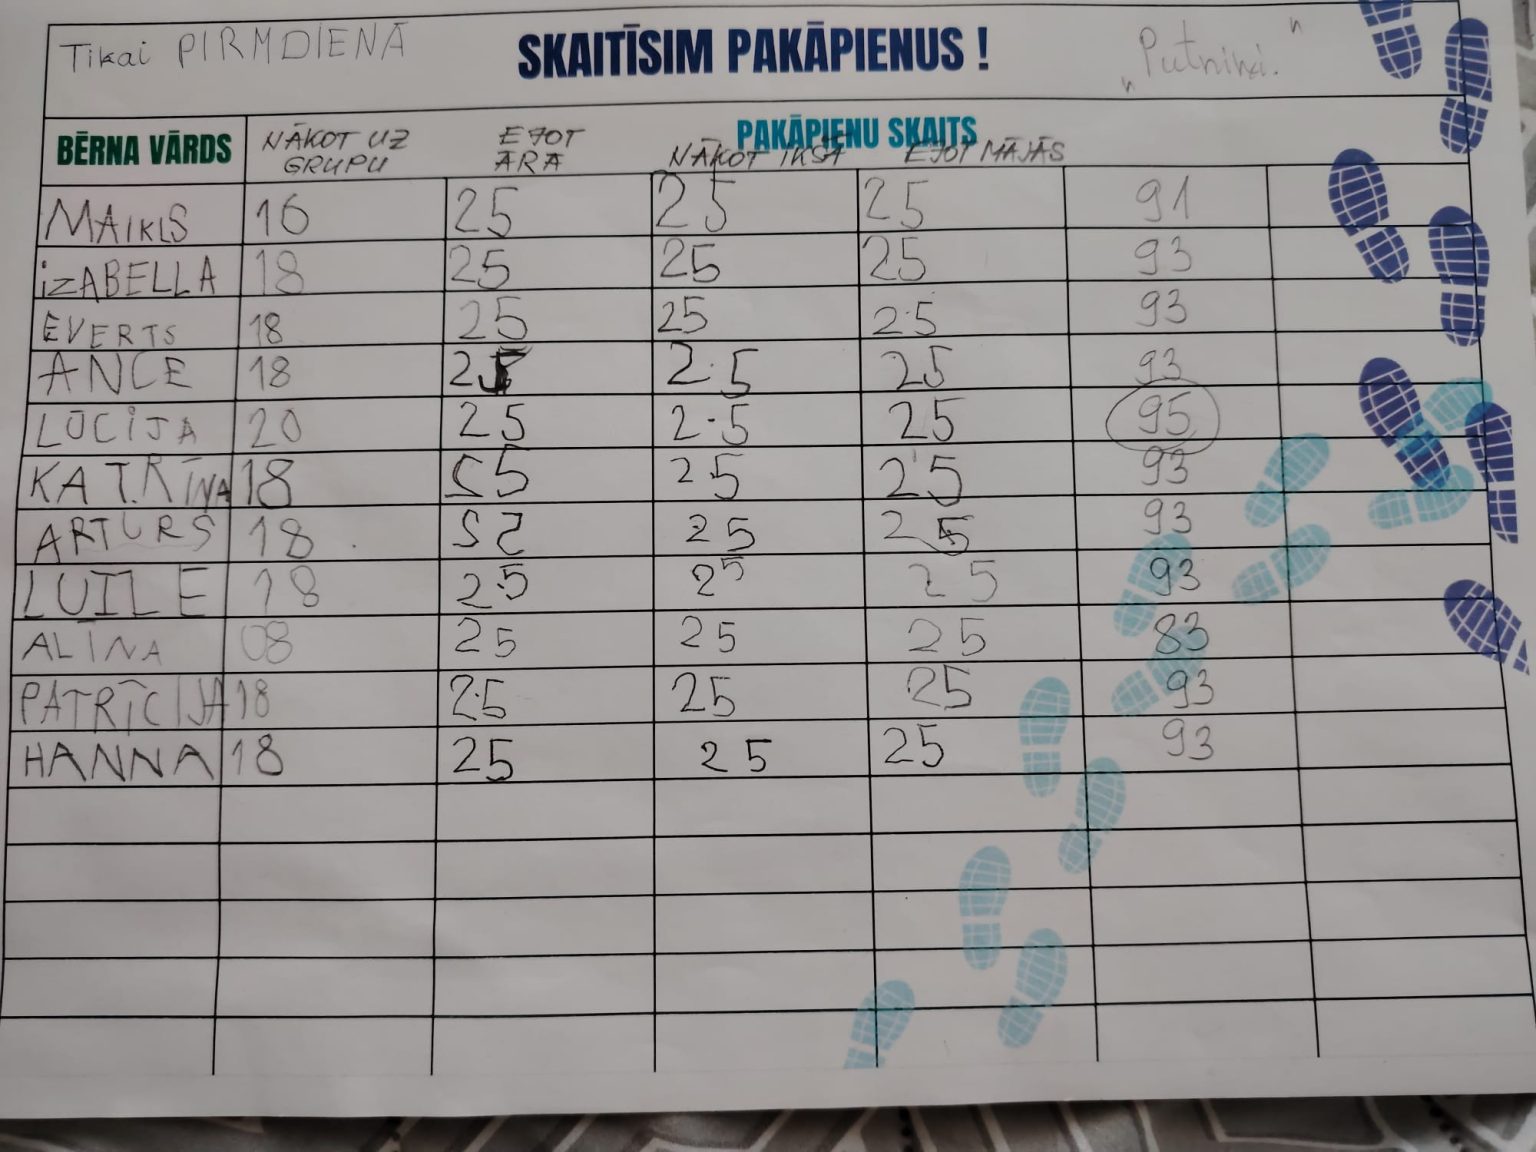 Tikai PIRMDIENĀ SKAITĪSIM PAKĀPIENUS ! "Putniņi."
BĒRNA VĀRDS PAKĀPIENU SKAITS
NĀKOT UZ GRUPU EJOT ĀRĀ NĀKOT IKŠĀ EJOT MĀJĀS
MAIKLS 16 25 25 25 91
iZABELLA 18 25 25 25 93
EVERTS 18 25 25 25 93
ANCE 18 25 2.5 25 93
LŪCIJA 20 25 2.5 25 95
KATRĪNA 18 25 25 25 93
ARTURS 18 25 25 25 93
LUĪLE 18 25 25 25 93
ALĪNA 08 25 25 25 83
PATRĪCIJA 18 25 25 25 93
HANNA 18 25 25 25 93